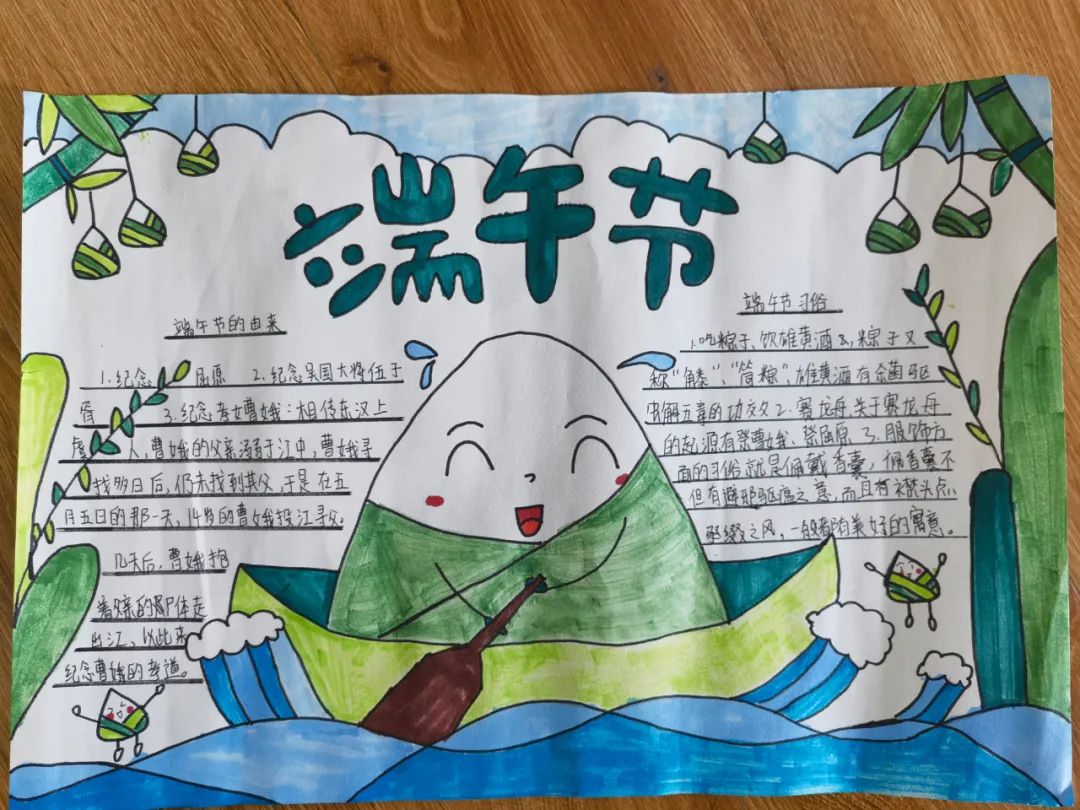 端午节
端午节的由来
1. 纪念 屈原 2. 纪念吴国大将伍子
胥 3. 纪念孝女曹娥:相传东汉上
虞 人,曹娥的父亲溺于江中,曹娥寻
找多日后,仍未找到其父,于是在五
月五日的那一天,14岁的曹娥投江寻父。
几天后,曹娥抱
着父亲的尸体走
出江,以此来
纪念曹娥的孝道。
端午节习俗
1. 吃粽子、饮雄黄酒 粽子又
称“角黍”、“筒粽”,雄黄酒有杀菌驱
虫解五毒的功效 2. 赛龙舟,关于赛龙舟
的起源有祭曹娥、祭屈原 3. 服饰方
面的习俗就是佩戴香囊,佩香囊不
但有避邪驱瘟之意,而且有襟头点
缀之风,一般都有美好的寓意。